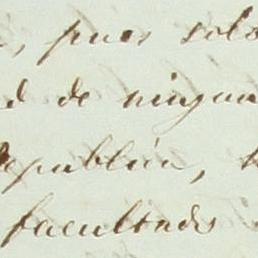 , pues solo
d de ningun
Republica,
facultades